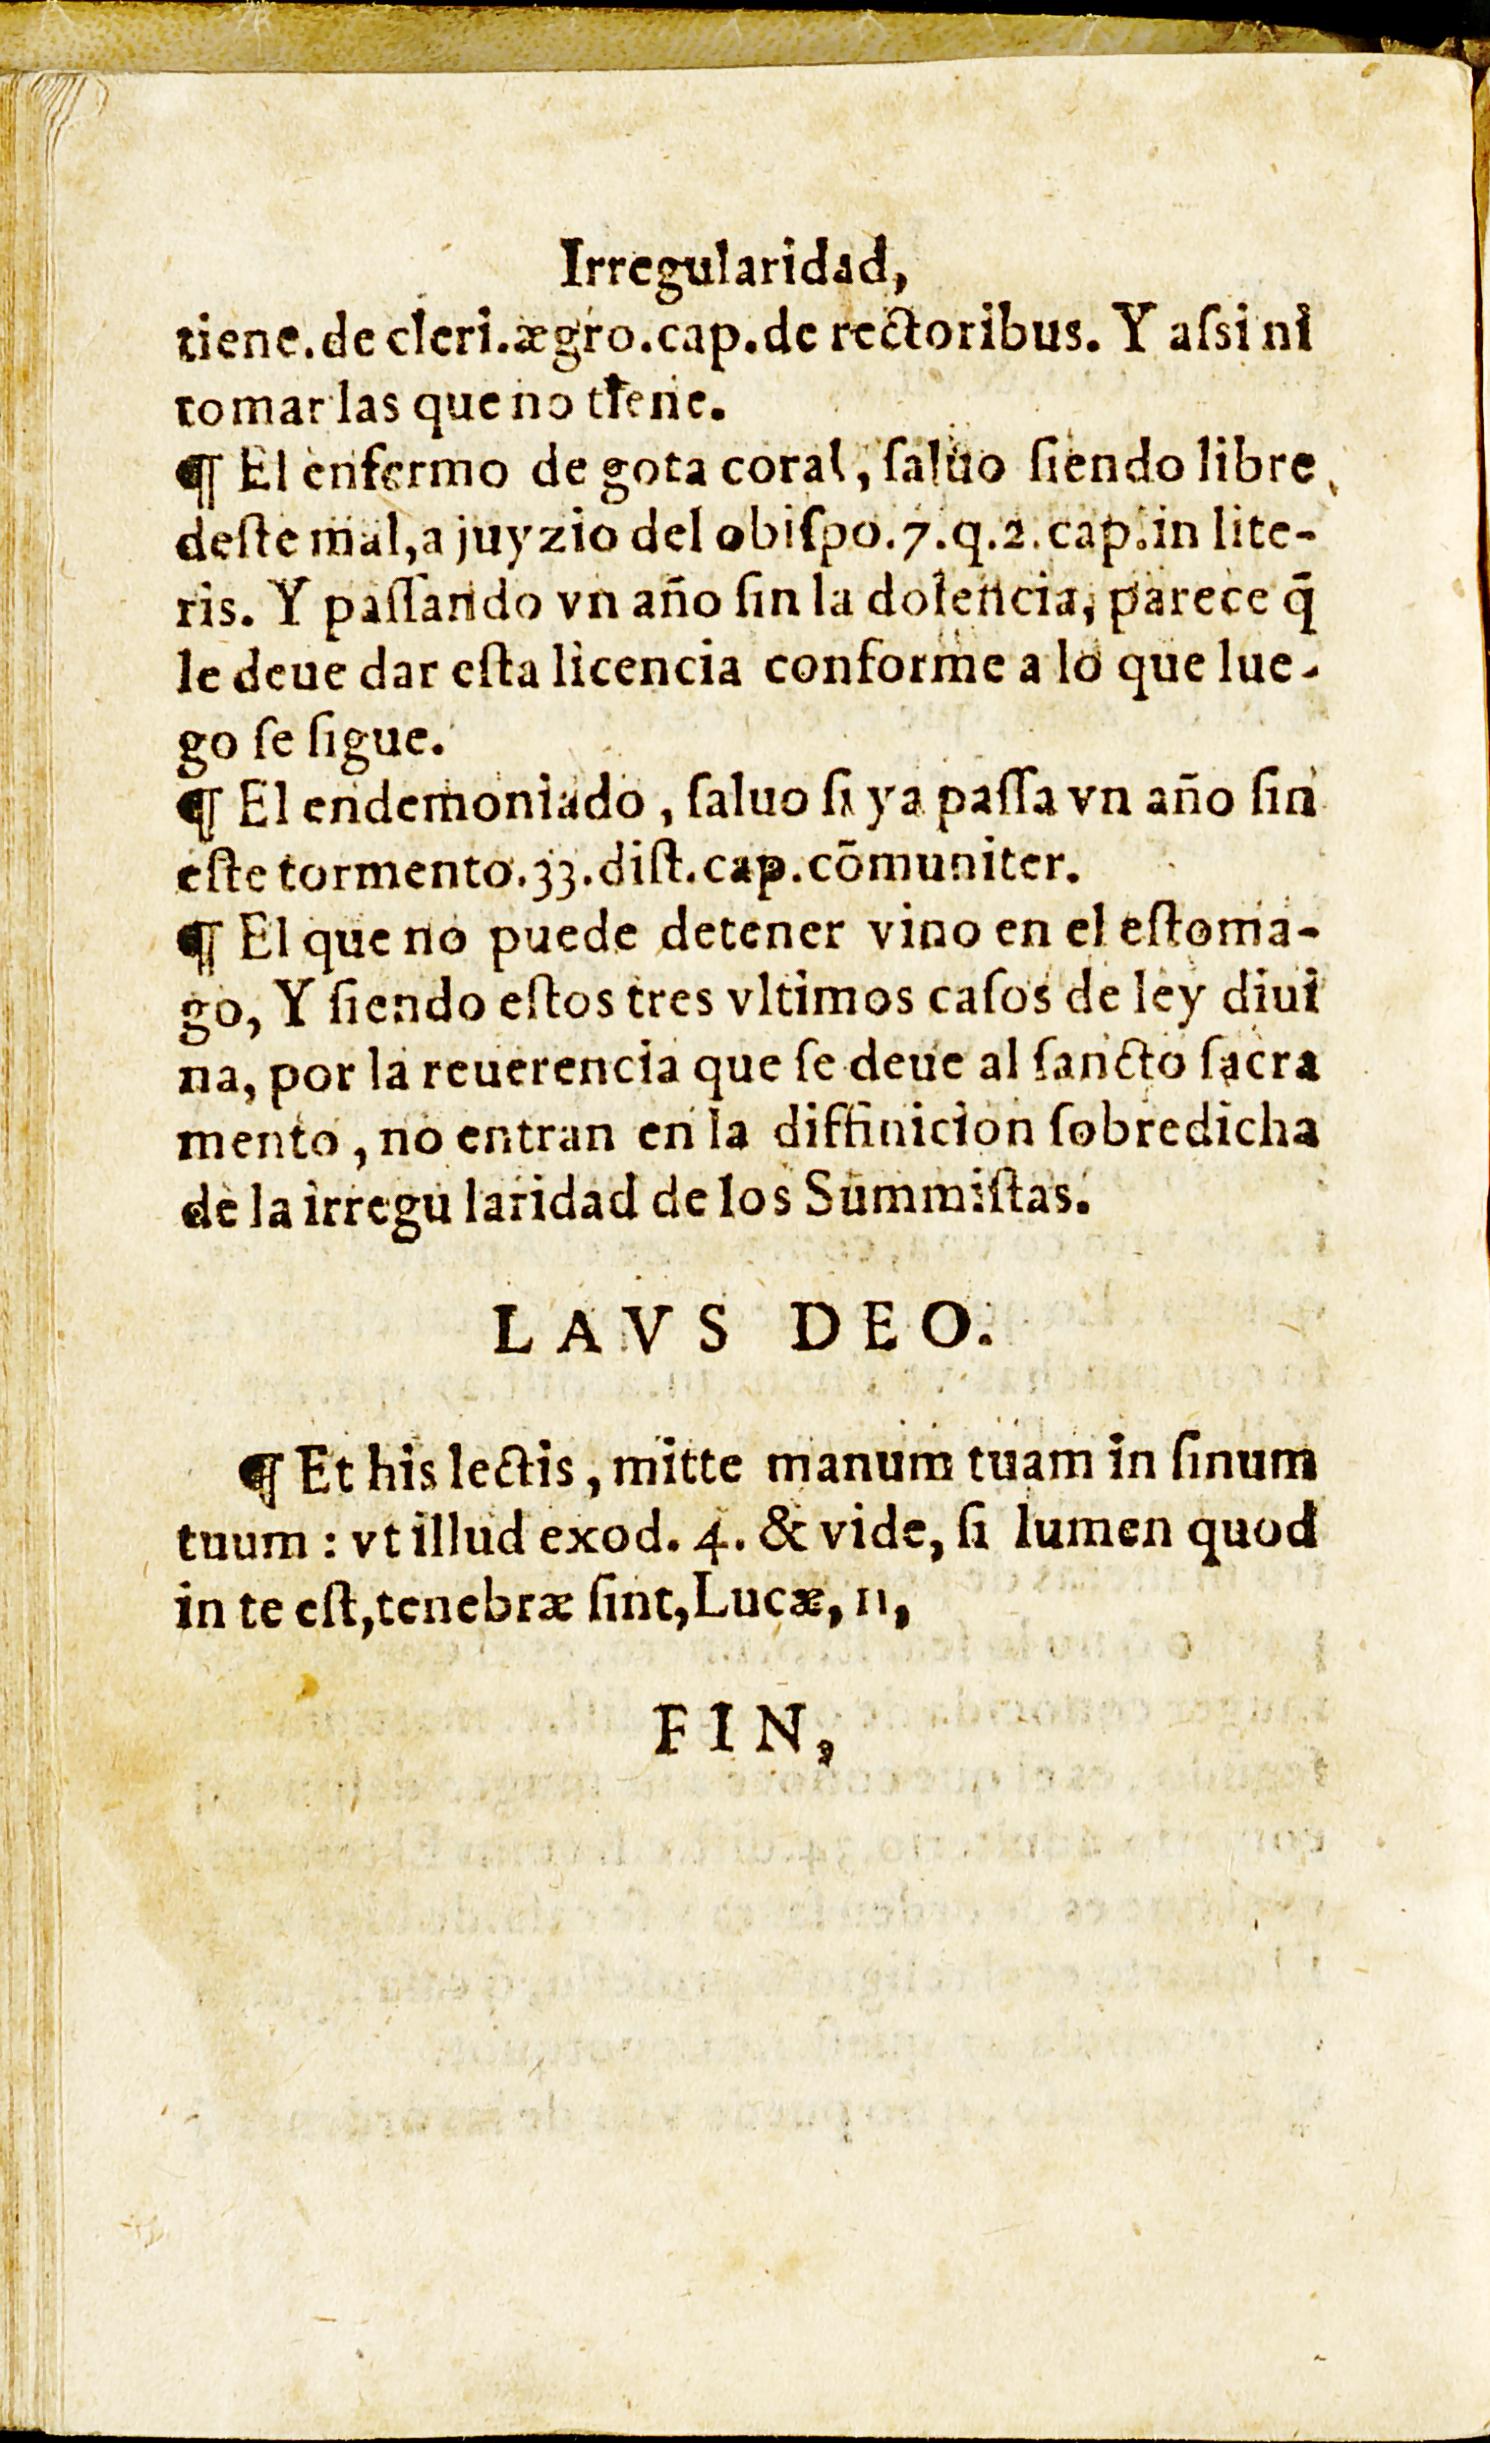 Irregularidad,
tiene.de cleri.ægro.cap.de rectoribus. Y aſsi ni
tomar las que no tiene.
¶ El enfermo de gota coral, ſaluo ſiendo libre
deſte mal,a juyzio del obiſpo.7.q.2.cap.in lite-
ris. Y paſſando vn año ſin la dolencia, parece q̃
le deue dar eſta licencia conforme a lo que lue-
go ſe ſigue.
¶ El endemoniado, ſaluo ſi ya paſſa vn año ſin
eſte tormento.33.diſt.cap.cõmuniter.
¶ El que no puede detener vino en el eſtoma-
go, Y ſiendo eſtos tres vltimos caſos de ley diui
na, por la reuerencia que ſe deue al ſancto ſacra
mento, no entran en la diffinicion ſobredicha
de la irregu laridad de los Summiſtas.
LAVS DEO.
¶ Et his lectis, mitte manum tuam in ſinum
tuum: vt illud exod. 4. & vide, ſi lumen quod
in te eſt,tenebræ ſint,Lucæ, 11,
FIN,